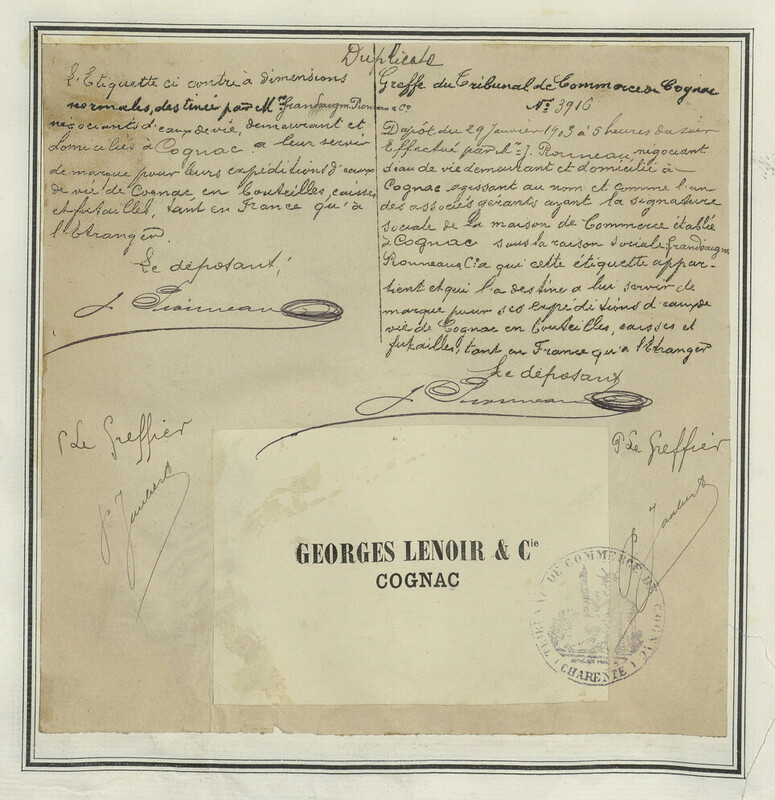 Duplicata
L'Etiquette ci contre à dimensions
normales, destinée par Mrs Grandsaigne Pionneau & Co
négociants d'eaux de vie, demeurant et
domiciliés à Cognac a leur servir
de marque pour leurs expéditions d'eaux
de vie de Cognac en bouteilles caisses
et futailles, tant en France qu'à
l'Etranger.
Le déposant,
J. Pionneau
Greffe du Tribunal de Commerce de Cognac
No 3916
Dépôt du 29 Janvier 1913 à 5 heures du soir
Effectué par Mr J. Pionneau, négociant
d'eau de vie demeurant et domicilié à
Cognac agissant au nom et comme l'un
des associés gérants ayant la signature
sociale de la maison de Commerce établie
à Cognac sous la raison sociale Grandsaigne
Pionneau & Cie a qui cette étiquette appar-
tient et qui l'a destine a lui servir de
marque pour ses expéditions d'eaux de
vie de Cognac en bouteilles, caisses et
futailles, tant en France qu'a l'Etranger
Le déposant
J. Pionneau
P Le Greffier
P Jaubert
P Le Greffier
P Jaubert
GEORGES LENOIR & Cie
COGNAC
TRIBUNAL DE COMMERCE DE COGNAC
(CHARENTE)